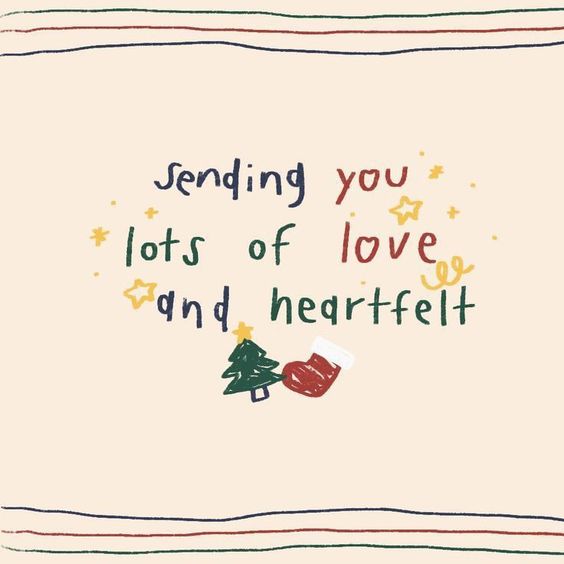 sending you
lots of love
and heartfelt